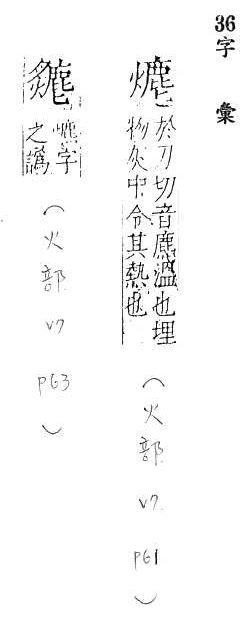 36字彙
於刀切音溫也埋
物灰中令其熱也
(火部 V7 P61)
字
之譌
(火部 V7 P63)